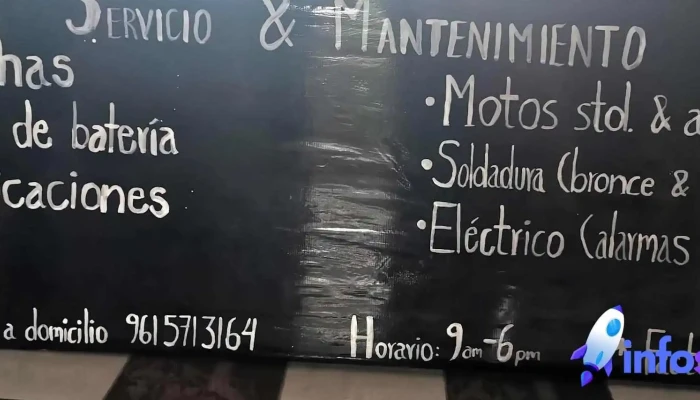 SERVICIO & MANTENIMIENTO
has
de batería
caciones
• Motos std. & a
• Soldadura (bronce &
• Eléctrico (alarmas
a domicilio 9615713164
Horario: 9am-6pm
info